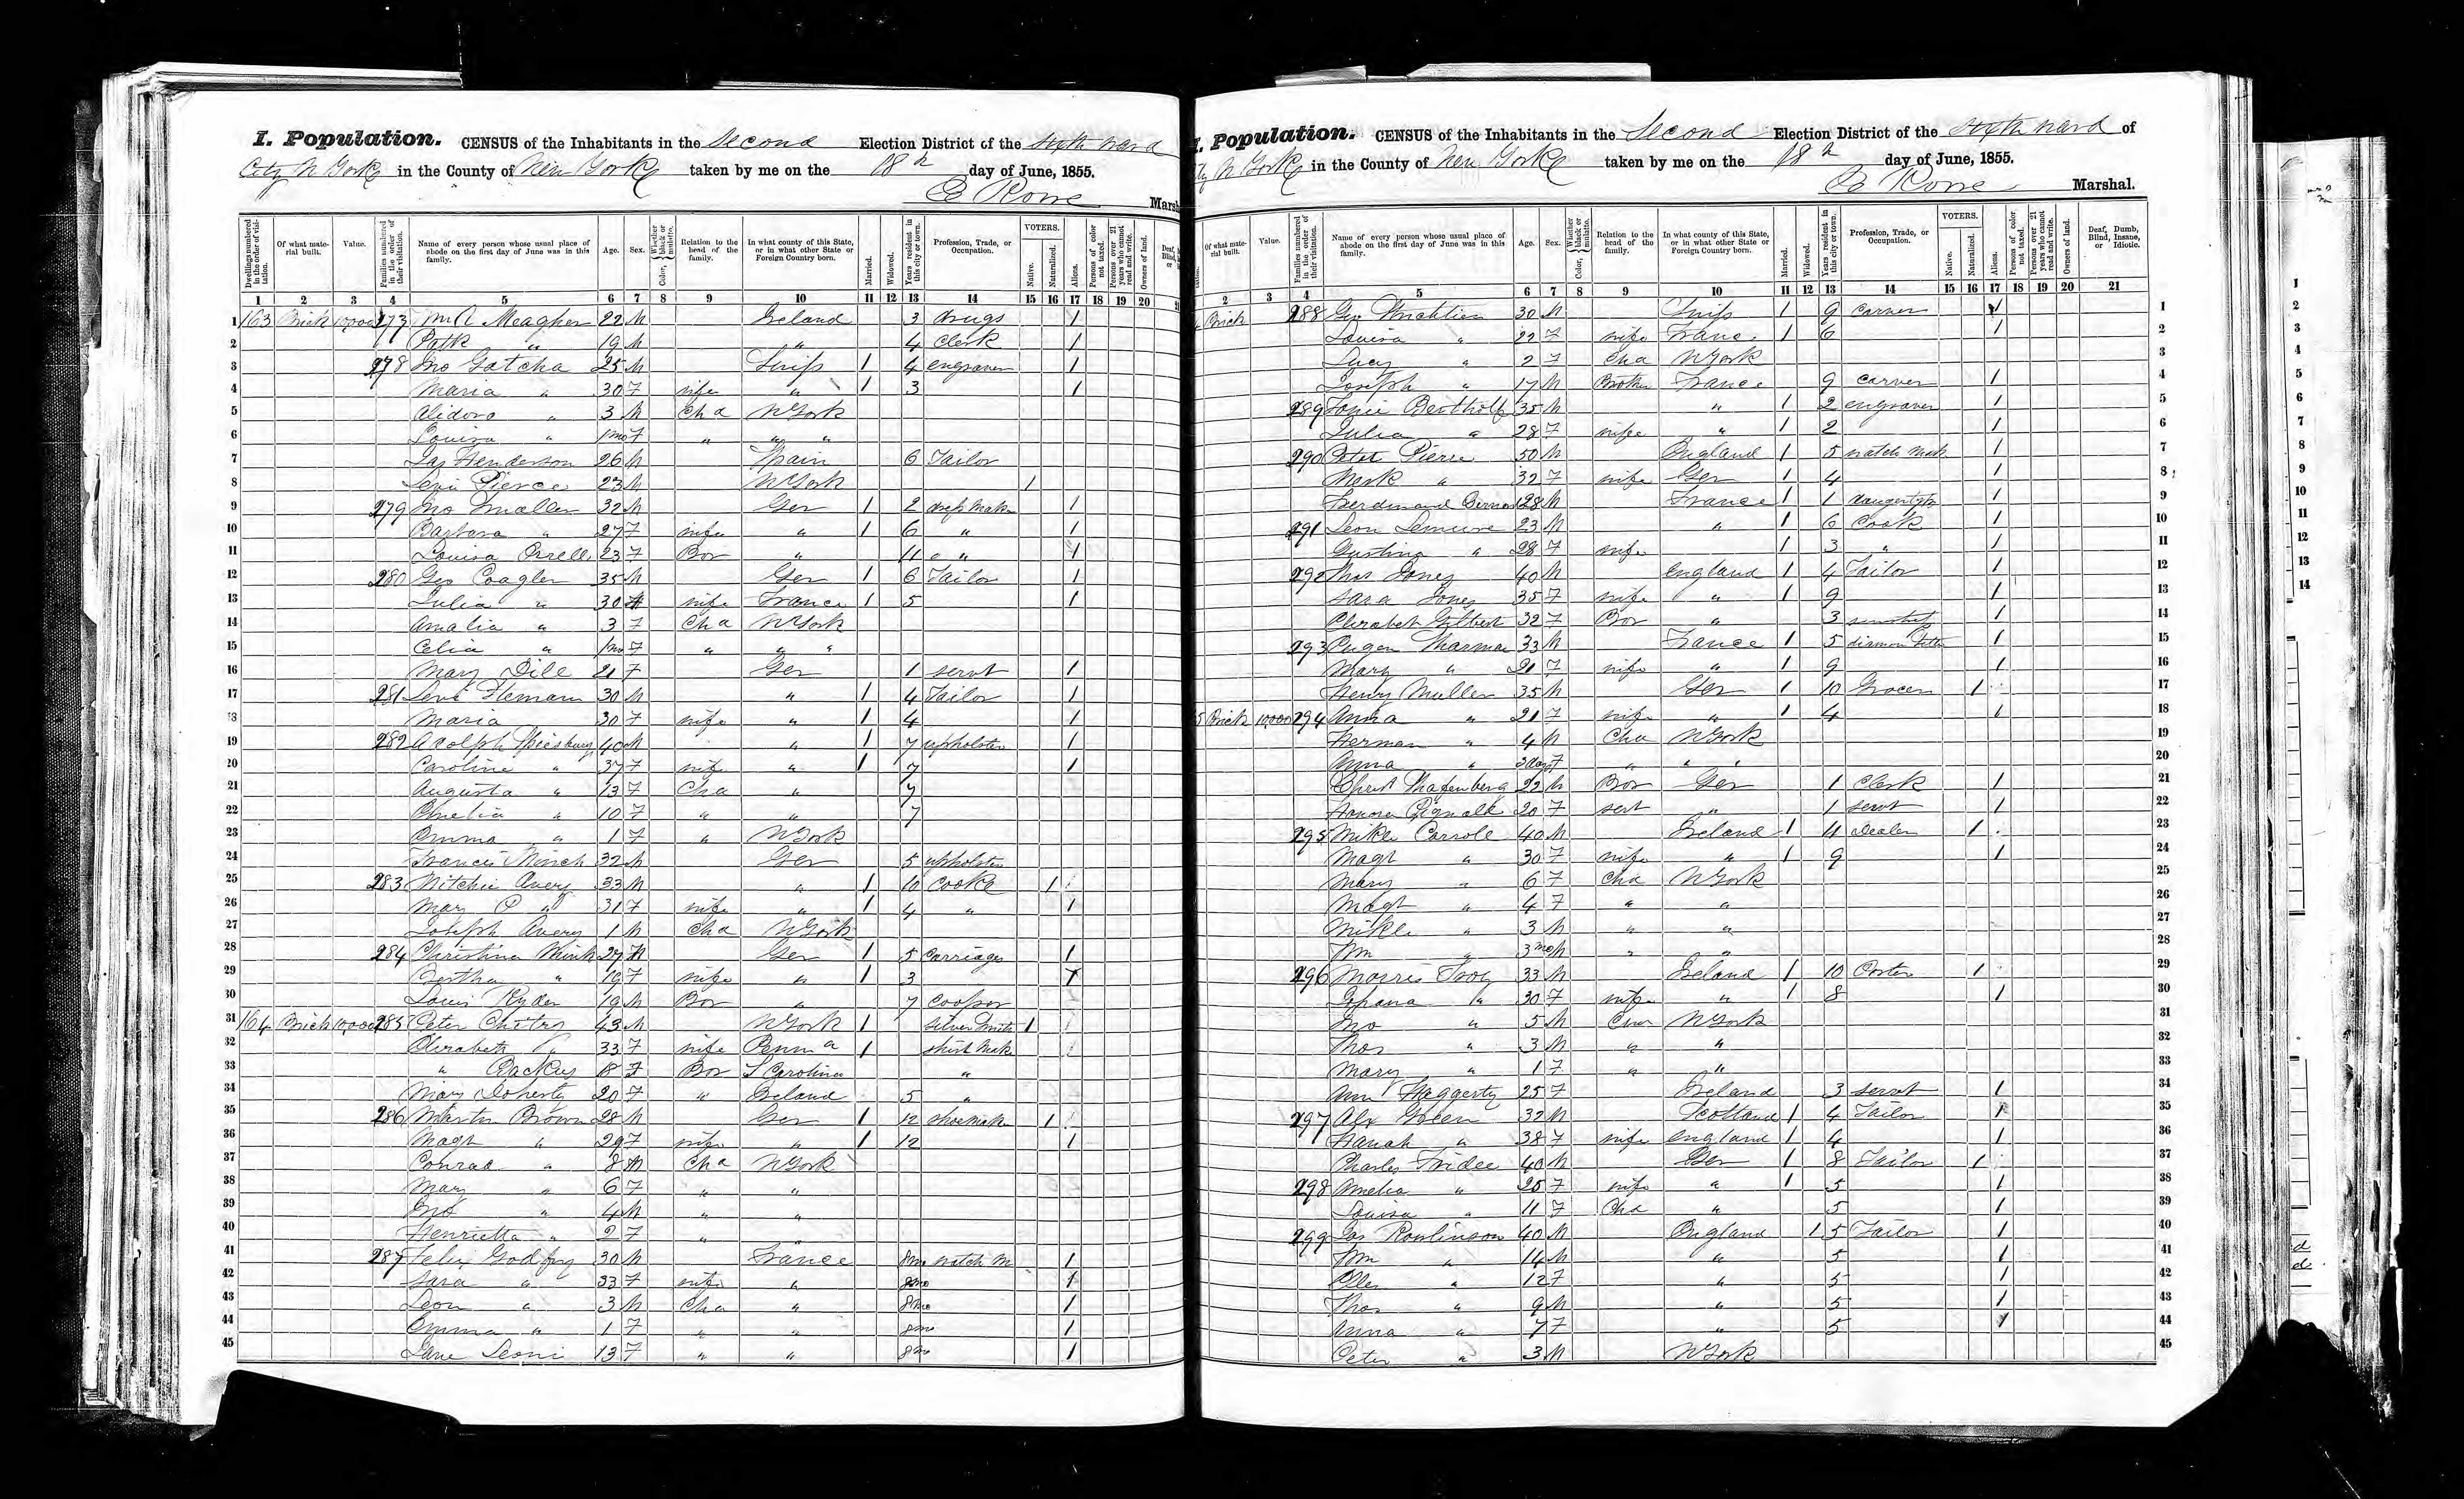 I. Population. CENSUS of the Inhabitants in the Second Election District of the Sixth Ward
City N York in the County of New York taken by me on the 18th day of June, 1855.
E Rowe Marsh
Dwellings numbered in the order of visitation. Of what material built. Value. Families numbered in the order of their visitation. Name of every person whose usual place of abode on the first day of June was in this family. Age. Sex. Color, Whether black or mulatto. Relation to the head of the family. In what county of this State, or in what other State or Foreign Country born. Married. Widowed. Years resident in this city or town. Profession, Trade, or Occupation. VOTERS. Native. Naturalized. Aliens. Persons of color not taxed. Persons over 21 years who cannot read and write. Owners of land. Deaf, Blind, or
1 2 3 4 5 6 7 8 9 10 11 12 13 14 15 16 17 18 19 20
1 163 Brick 10,000 Meagher 22 M Ireland 3 drugs 1
2 Patk " 19 M " 4 Clerk 1
3 278 Jno Gatcha 25 M Swiss 1 4 engraver 1
4 Maria " 30 F wife " 1 3 1
5 " 3 M Cha N York
6 Louisa " 1mo F " " "
7 Jas Henderson 26 M Spain 6 Tailor
8 Levi Pierce 23 M N York 1
9 279 Jno Muller 32 M Ger 1 2 dress Make 1
10 Barbara " 27 F wife " 1 6 " 1
11 Louisa 23 F Bor " 11 " 1
12 280 Geo Coagler 35 M Ger 1 6 Tailor 1
13 Julia " 30 F wife France 1 5 1
14 Amalia " 3 F Cha N York
15 Celia " 1mo F " " "
16 Mary Dile 21 F Ger 1 servt 1
17 281 Levi 30 M " 1 4 Tailor 1
18 Maria 30 F wife " 1 4 1
19 282 Adolph 40 M " 1 7 upholster 1
20 Caroline " 37 F wife " 1 7 1
21 Augusta " 13 F Cha " 7
22 Amelia " 10 F " " 7
23 Emma " 1 F " N York
24 Francis Minch 32 M Ger 5 upholster
25 283 Mitchie Avery 33 M " 1 10 Cooke 1
26 Mary " 31 F wife " 1 4 " 1
27 Joseph Avery 1 M Cha N York
28 284 Christina Mink 27 M Ger 1 5 Carriages 1
29 Bertha " 19 F wife " 1 3 1
30 Louis Ryder 19 M Bor " 7 Cooper
31 164 Brick 10,000 285 Peter 43 M N York 1 Silver Smith 1
32 Elizabeth " 33 F wife Penn a 1 shirt Make
33 " Backus 18 F Bor S Carolina "
34 Mary Doherty 20 F " Ireland 5 "
35 286 Martin Brown 28 M Ger 1 12 shoemak 1
36 Magt " 29 F wife " 1 12 1
37 Conrad " 8 M Cha N York
38 Mary " 6 F " "
39 Jno " 4 M " "
40 Henrietta " 2 F " "
41 287 Felix Godfroy 30 M France 8mo watch M 1
42 Sara " 33 F wife " 8mo 1
43 Leon " 3 M Cha " 8mo 1
44 Emma " 1 F " " 8mo 1
45 Jane Leoni 13 F " " 8mo 1
I. Population. CENSUS of the Inhabitants in the Second Election District of the Sixth Ward of
City N York in the County of New York taken by me on the 18th day of June, 1855.
E Rowe Marshal.
Of what material built. Value. Families numbered in the order of their visitation. Name of every person whose usual place of abode on the first day of June was in this family. Age. Sex. Color, Whether black or mulatto. Relation to the head of the family. In what county of this State, or in what other State or Foreign Country born. Married. Widowed. Years resident in this city or town. Profession, Trade, or Occupation. VOTERS. Native. Naturalized. Aliens. Persons of color not taxed. Persons over 21 years who cannot read and write. Owners of land. Deaf, Dumb, Blind, Insane, or Idiotic.
2 3 4 5 6 7 8 9 10 11 12 13 14 15 16 17 18 19 20 21
Brick 288 Geo 30 M Swiss 1 9 carver 1 1
Louisa " 22 F wife France 1 6 1 2
Lucy " 2 F Cha N York 3
Joseph " 17 M Brother France 9 carver 1 4
289 Bertholf 35 M " 1 2 engraver 1 5
Julia " 28 F wife " 1 2 1 6
290 Pierre 50 M England 1 5 watch Mak 1 7
" 32 F wife Ger 1 4 1 8
Ferdinand 28 M France 1 1 1 9
291 Leon Lemuire 23 M " 1 6 Cook 1 10
" 28 F wife 1 3 " 1 11
292 Thos Jones 40 M England 1 4 Tailor 1 12
Sara Jones 35 F wife " 1 9 1 13
Elizabeth Gilbert 32 F Bor " 3 1 14
293 Eugen 33 M France 1 5 1 15
Mary " 21 F wife " 1 9 1 16
Henry Muller 35 M Ger 1 10 Grocer 1 17
5 Brick 10,000 294 Anna " 21 F wife " 1 4 1 18
Herman " 4 M Cha N York 19
Anna " F " " " 20
22 M Bor Ger 1 Clerk 1 21
20 F sert " 1 servt 1 22
295 Mike Carrole 40 M Ireland 1 11 Dealer 1 23
Magt " 30 F wife " 1 9 1 24
Mary " 6 F Cha N York 25
Magt " 4 F " " 26
Mike " 3 M " " 27
Wm " 3mo M " " 28
296 Morris 33 M Ireland 1 10 Porter 1 29
" 30 F wife " 1 8 1 30
Jno " 5 M Cha N York 31
Thos " 3 M " " 32
Mary " 1 F " " 33
Ann Haggerty 25 F Ireland 3 servt 1 34
297 Alx Green 32 M Scotland 1 4 Tailor 1 35
Hanah " 38 F wife England 1 4 1 36
Charles Fridee 40 M Ger 1 8 Tailor 1 37
298 Amelia " 25 F wife " 1 5 1 38
Louisa " 11 F Cha " 5 1 39
299 Jas Romlinson 40 M England 1 5 Tailor 1 40
Wm " 14 M " 5 1 41
Ellen " 12 F " 5 1 42
Thos " 9 M " 5 1 43
Anna " 7 F " 5 1 44
Peter " 3 M N York 45
1
2
3
4
5
6
7
8
9
10
11
12
13
14